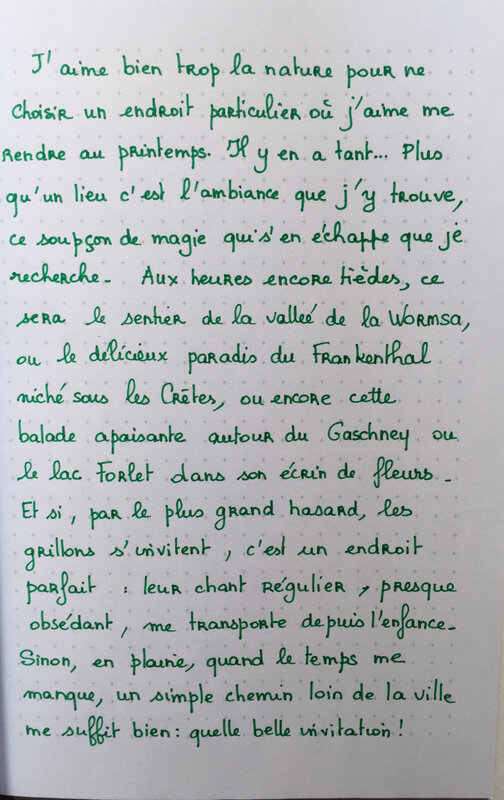 J'aime bien trop la nature pour ne
choisir un endroit particulier où j'aime me
rendre au printemps. Il y en a tant... Plus
qu'un lieu c'est l'ambiance que j'y trouve,
ce soupçon de magie qui s'en échappe que je
recherche. Aux heures encore tièdes, ce
sera le sentier de la valleé de la Wormsa,
ou le délicieux paradis du Frankenthal
niché sous les Crêtes, ou encore cette
balade apaisante autour du Gaschney ou
le lac Forlet dans son écrin de fleurs.
Et si, par le plus grand hasard, les
grillons s'invitent, c'est un endroit
parfait : leur chant régulier, presque
obsédant, me transporte depuis l'enfance.
Sinon, en plaine, quand le temps me
manque, un simple chemin loin de la ville
me suffit bien : quelle belle invitation !